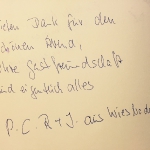 vielen Dank für den
schönen Abend,
Ihre Gastfreundschaft
und eigentlich alles
P. C. R + J. aus Wiesbaden